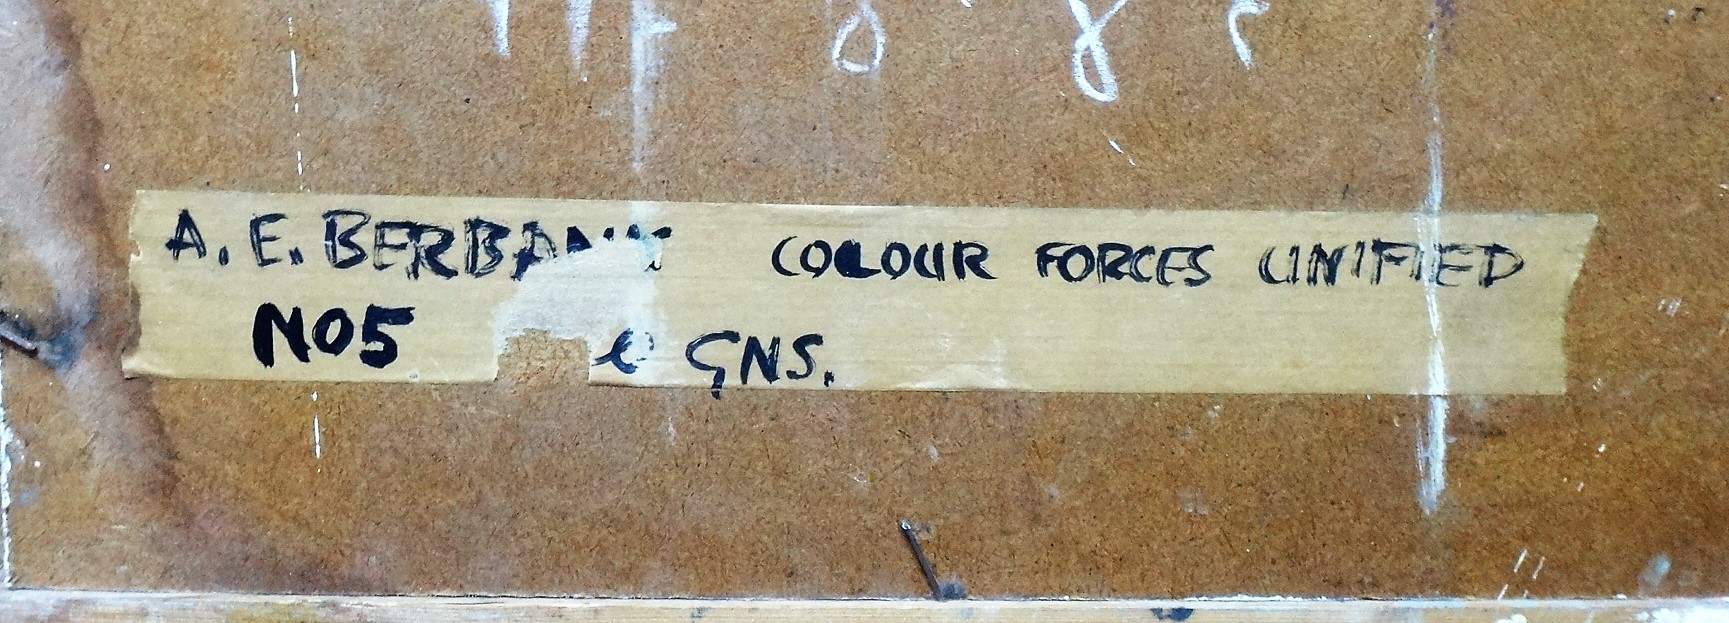 A. E. BERBANK COLOUR FORCES UNIFIED
NO5 GNS.